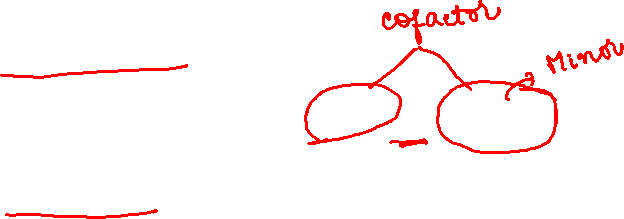 cofactor
Minor